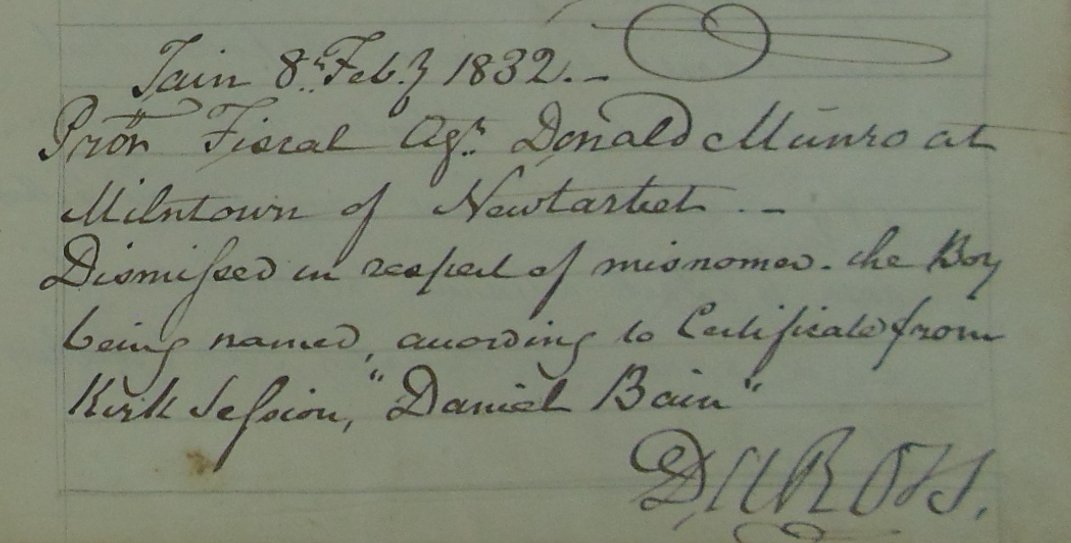 Tain 8th Feby 1832. –
Prorr Fiscal Agt. Donald Munro at
Milntown of Newtarbet. –
Dismissed in respect of misnomer. the Boy
being named, according to Certificate from
Kirk Session, "Daniel Bain"